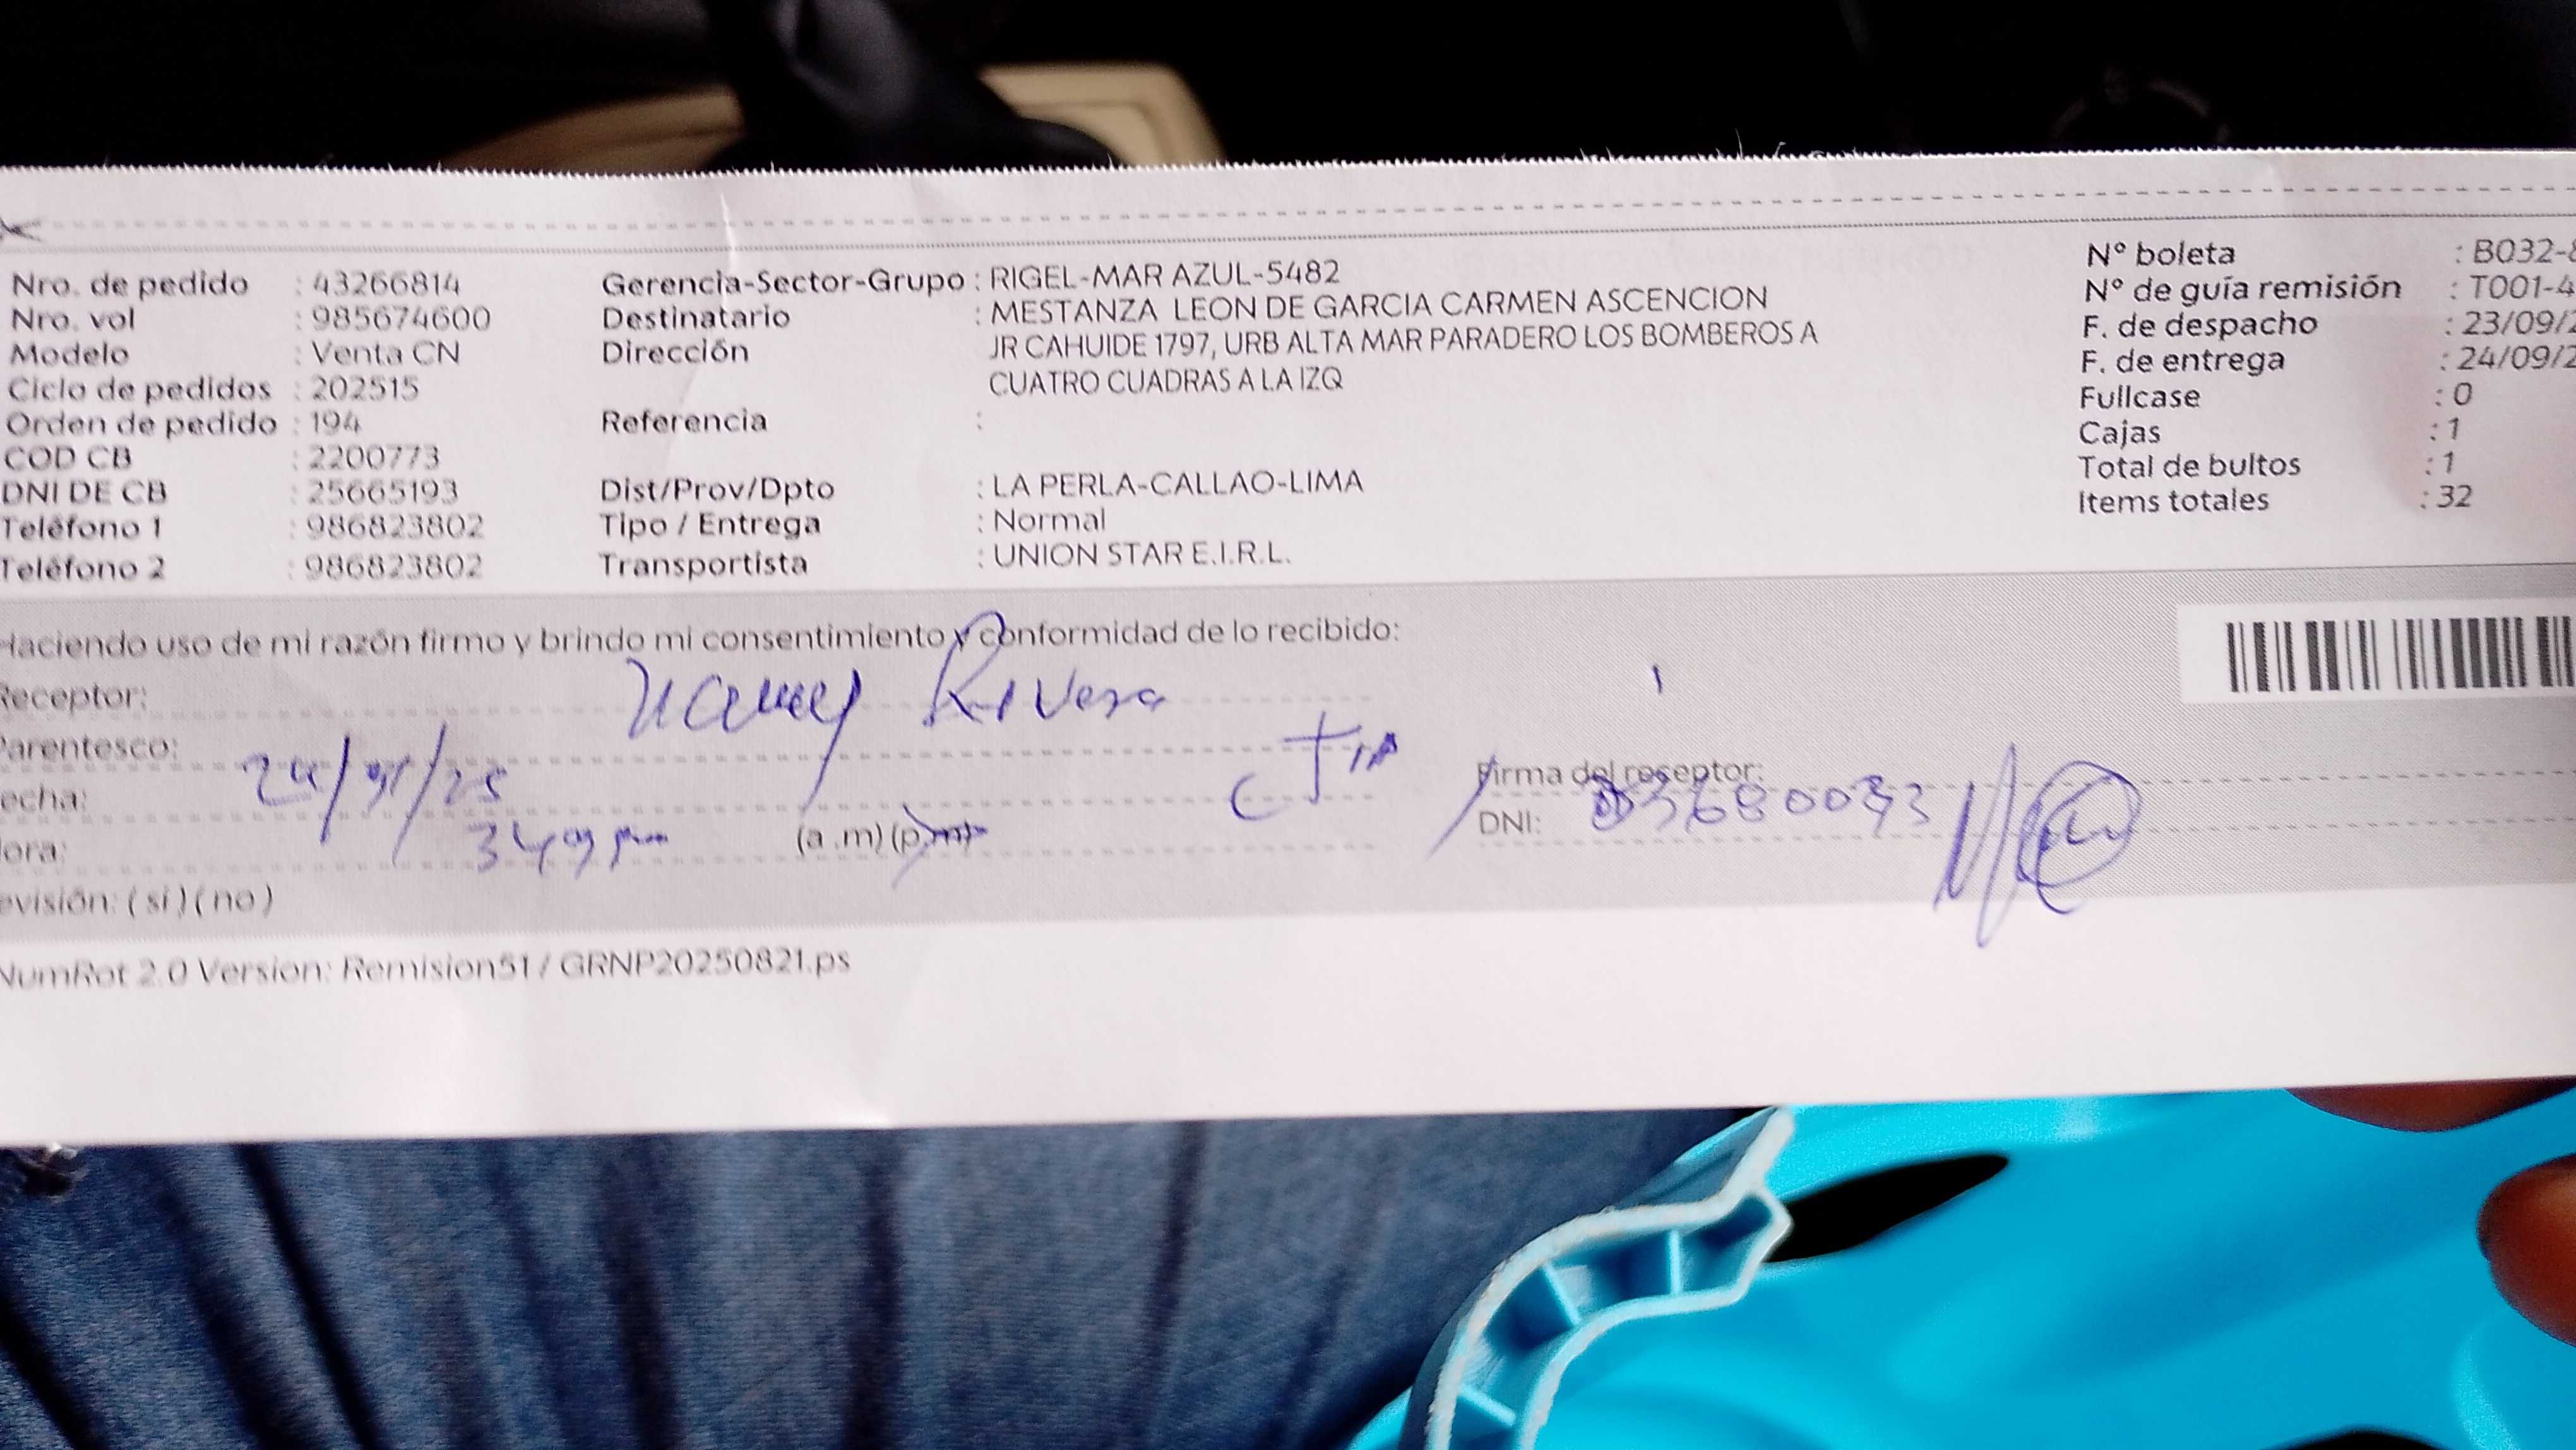 Nro. de pedido : 43266814
Nro. vol : 985674600
Modelo : Venta CN
Ciclo de pedidos : 202515
Orden de pedido : 194
COD CB : 2200773
DNI DE CB : 25665193
Teléfono 1 : 986823802
Teléfono 2 : 986823802
Gerencia-Sector-Grupo : RIGEL-MAR AZUL-5482
Destinatario : MESTANZA LEON DE GARCIA CARMEN ASCENCION
Dirección JR CAHUIDE 1797, URB ALTA MAR PARADERO LOS BOMBEROS A
CUATRO CUADRAS A LA IZQ
Referencia :
Dist/Prov/Dpto : LA PERLA-CALLAO-LIMA
Tipo / Entrega : Normal
Transportista : UNION STAR E.I.R.L.
Nº boleta : B032-
Nº de guía remisión : T001-4
F. de despacho : 23/09/2
F. de entrega : 24/09/2
Fullcase : 0
Cajas : 1
Total de bultos : 1
Items totales : 32
Haciendo uso de mi razón firmo y brindo mi consentimiento y conformidad de lo recibido:
Receptor: Rivera
Parentesco:
echa:
ora: 349 pm (a .m) (p.m)
Firma del receptor:
DNI:
evisión: ( si ) ( no )
NumRot 2.0 Version: Remision51 / GRNP20250821.ps